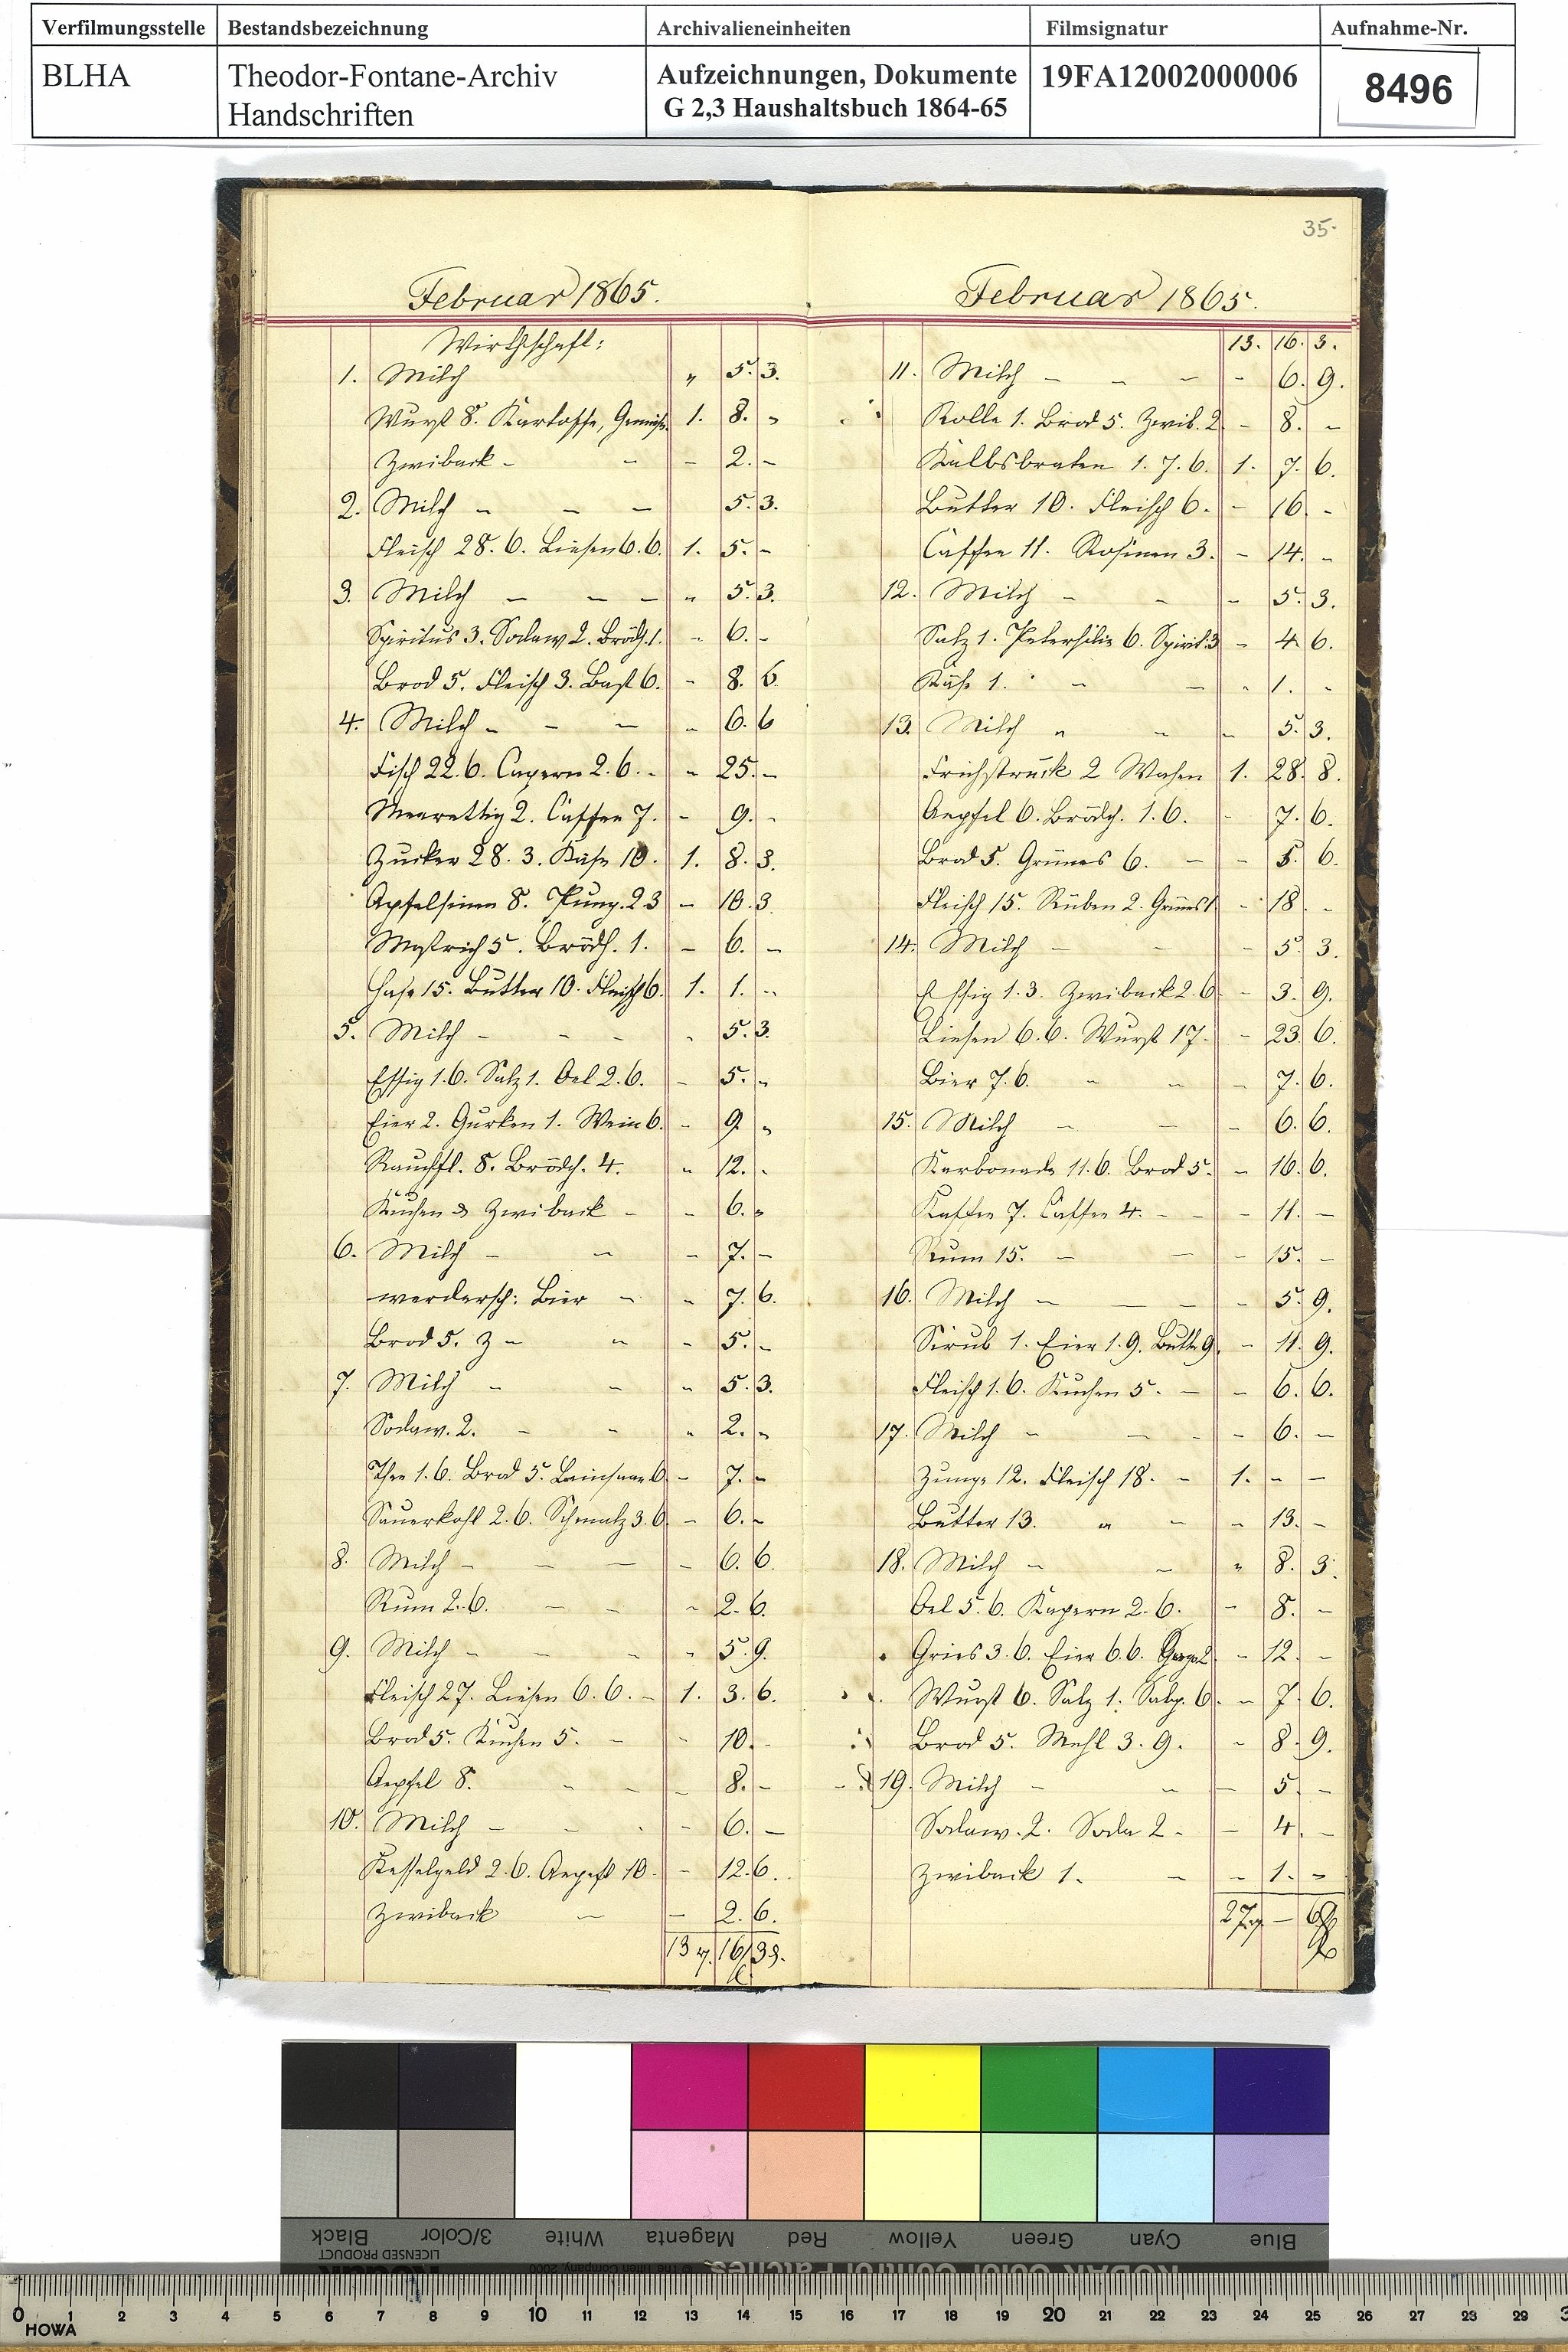 Verfilmungsstelle Bestandsbezeichnung Archivalieneinheiten Filmsignatur Aufnahme-Nr.
BLHA Theodor-Fontane-Archiv Aufzeichnungen, Dokumente 19FA12002000006 8496
Handschriften G 2,3 Haushaltsbuch 1864-65
Februar 1865.
Wirthschaft:
1. Milch " 5. 3.
Wurst 8. Kartoffe, Gemüse. 1. 8. "
Zwiback - - - 2. -
2. Milch - - - 5. 3.
Fleisch 28. 6. Liesen 6. 6. 1. 5. -
3. Milch - - - " 5. 3.
Spiritus 3. Sodaw 2. Brödch. 1. - 6. -
Brod 5. Fleisch 3. Bast 6. - 8. 6.
4. Milch - - - " 6. 6
Fisch 22. 6. Capern 2. 6. - " 25. -
Meerettig 2. Caffee 7. - 9. -
Zucker 28. 3. Käse 10. 1. 8. 3.
Apfelsinen 8. Pung. 2 3 - 10. 3.
Mostrich 5. Brödch. 1. - 6. -
Hase 15. Butter 10. Fleisch 6. 1. 1. "
5. Milch - - - " 5. 3.
Essig 1. 6. Salz 1. Oel 2. 6. - 5. "
Eier 2. Gurken 1. Wein 6. - 9 "
Rauchfl. 8. Brödch. 4. " 12. -
Kuchen & Zwiback - - 6. "
6. Milch - - - 7. -
werdersch: Bier - " 7. 6.
Brod 5. - " " 5. -
7. Milch - - " 5. 3.
Sodaw. 2. - - " 2. "
Thee 1. 6. Brod 5. Leinsaame 6 - 7. -
Sauerkohl 2. 6. Schmalz 3. 6 - 6. -
8. Milch - - - - 6. 6.
Rum 2. 6. - - " 2. 6.
9. Milch - - - " 5. 9.
Fleisch 27. Liesen 6. 6. - 1. 3. 6.
Brod 5. Kuchen 5. - - 10. -
Aepfel 8. - - - 8. -
10. Milch - - - - 6. -
Kesselgeld 2. 6. Aepfl 10. - 12. 6.
Zwiback - - 2. 6.
13 16 3
35.
Februar 1865.
13. 16. 3.
11. Milch - - - - 6. 9.
Rolle 1. Brod 5. Zwib. 2 - 8. -
Kalbsbraten 1. 7. 6. 1. 7. 6.
Butter 10. Fleisch 6. - 16. -
Caffee 11. Rosinen 3. - 14. -
12. Milch - - - 5. 3.
Salz 1. Petersilie 6. Spirit. 3 - 4. 6.
Käse 1. - - - 1. -
13. Milch " - " 5. 3.
Frühstück 2 Wochen 1. 28. 8.
Aepfel 6. Brödch. 1. 6. - 7. 6.
Brod 5. Grünes 6. - - 5. 6.
Fleisch 15. Rüben 2. Grünes 1 - 18. -
14. Milch - - - 5. 3.
Essig 1. 3. Zwiback 2. 6. - 3. 9.
Liesen 6. 6. Wurst 17. - 23. 6.
Bier 7. 6. - - - 7. 6.
15. Milch - - - 6. 6.
Karbonade 11. 6. Brod 5. - 16. 6.
Kaffee 7. Caffee 4. - - - 11. -
Rum 15. - - - 15. -
16. Milch - - - - 5. 9.
Sirub 1. Eier 1. 9. Butt. 9. - 11. 9.
Fleisch 1. 6. Kuchen 5. - - 6. 6.
17. Milch - - - - 6. -
Zunge 12. Fleisch 18. - 1. - -
Butter 13. " - - 13. -
18. Milch - - " 8. 3.
Oel 5. 6. Kapern 2. 6. - 8. -
Gries 3. 6. Eier 6. 6. 2 - 12. -
Wurst 6. Salz 1. 6. - 7. 6.
Brod 5. Mehl 3. 9. - 8. 9.
19. Milch - - - 5. -
Sodaw. 2. Soda 2. - 4. -
Zwiback 1. - - 1. -
27 - 6
Black 3/Color White Magenta Red Yellow Green Cyan Blue
LICENSED PRODUCT
KODAK Color Control Patches
0 1 2 3 4 5 6 7 8 9 10 11 12 13 14 15 16 17 18 19 20 21 22 23 24 25 26 27 28 29 3
HOWA